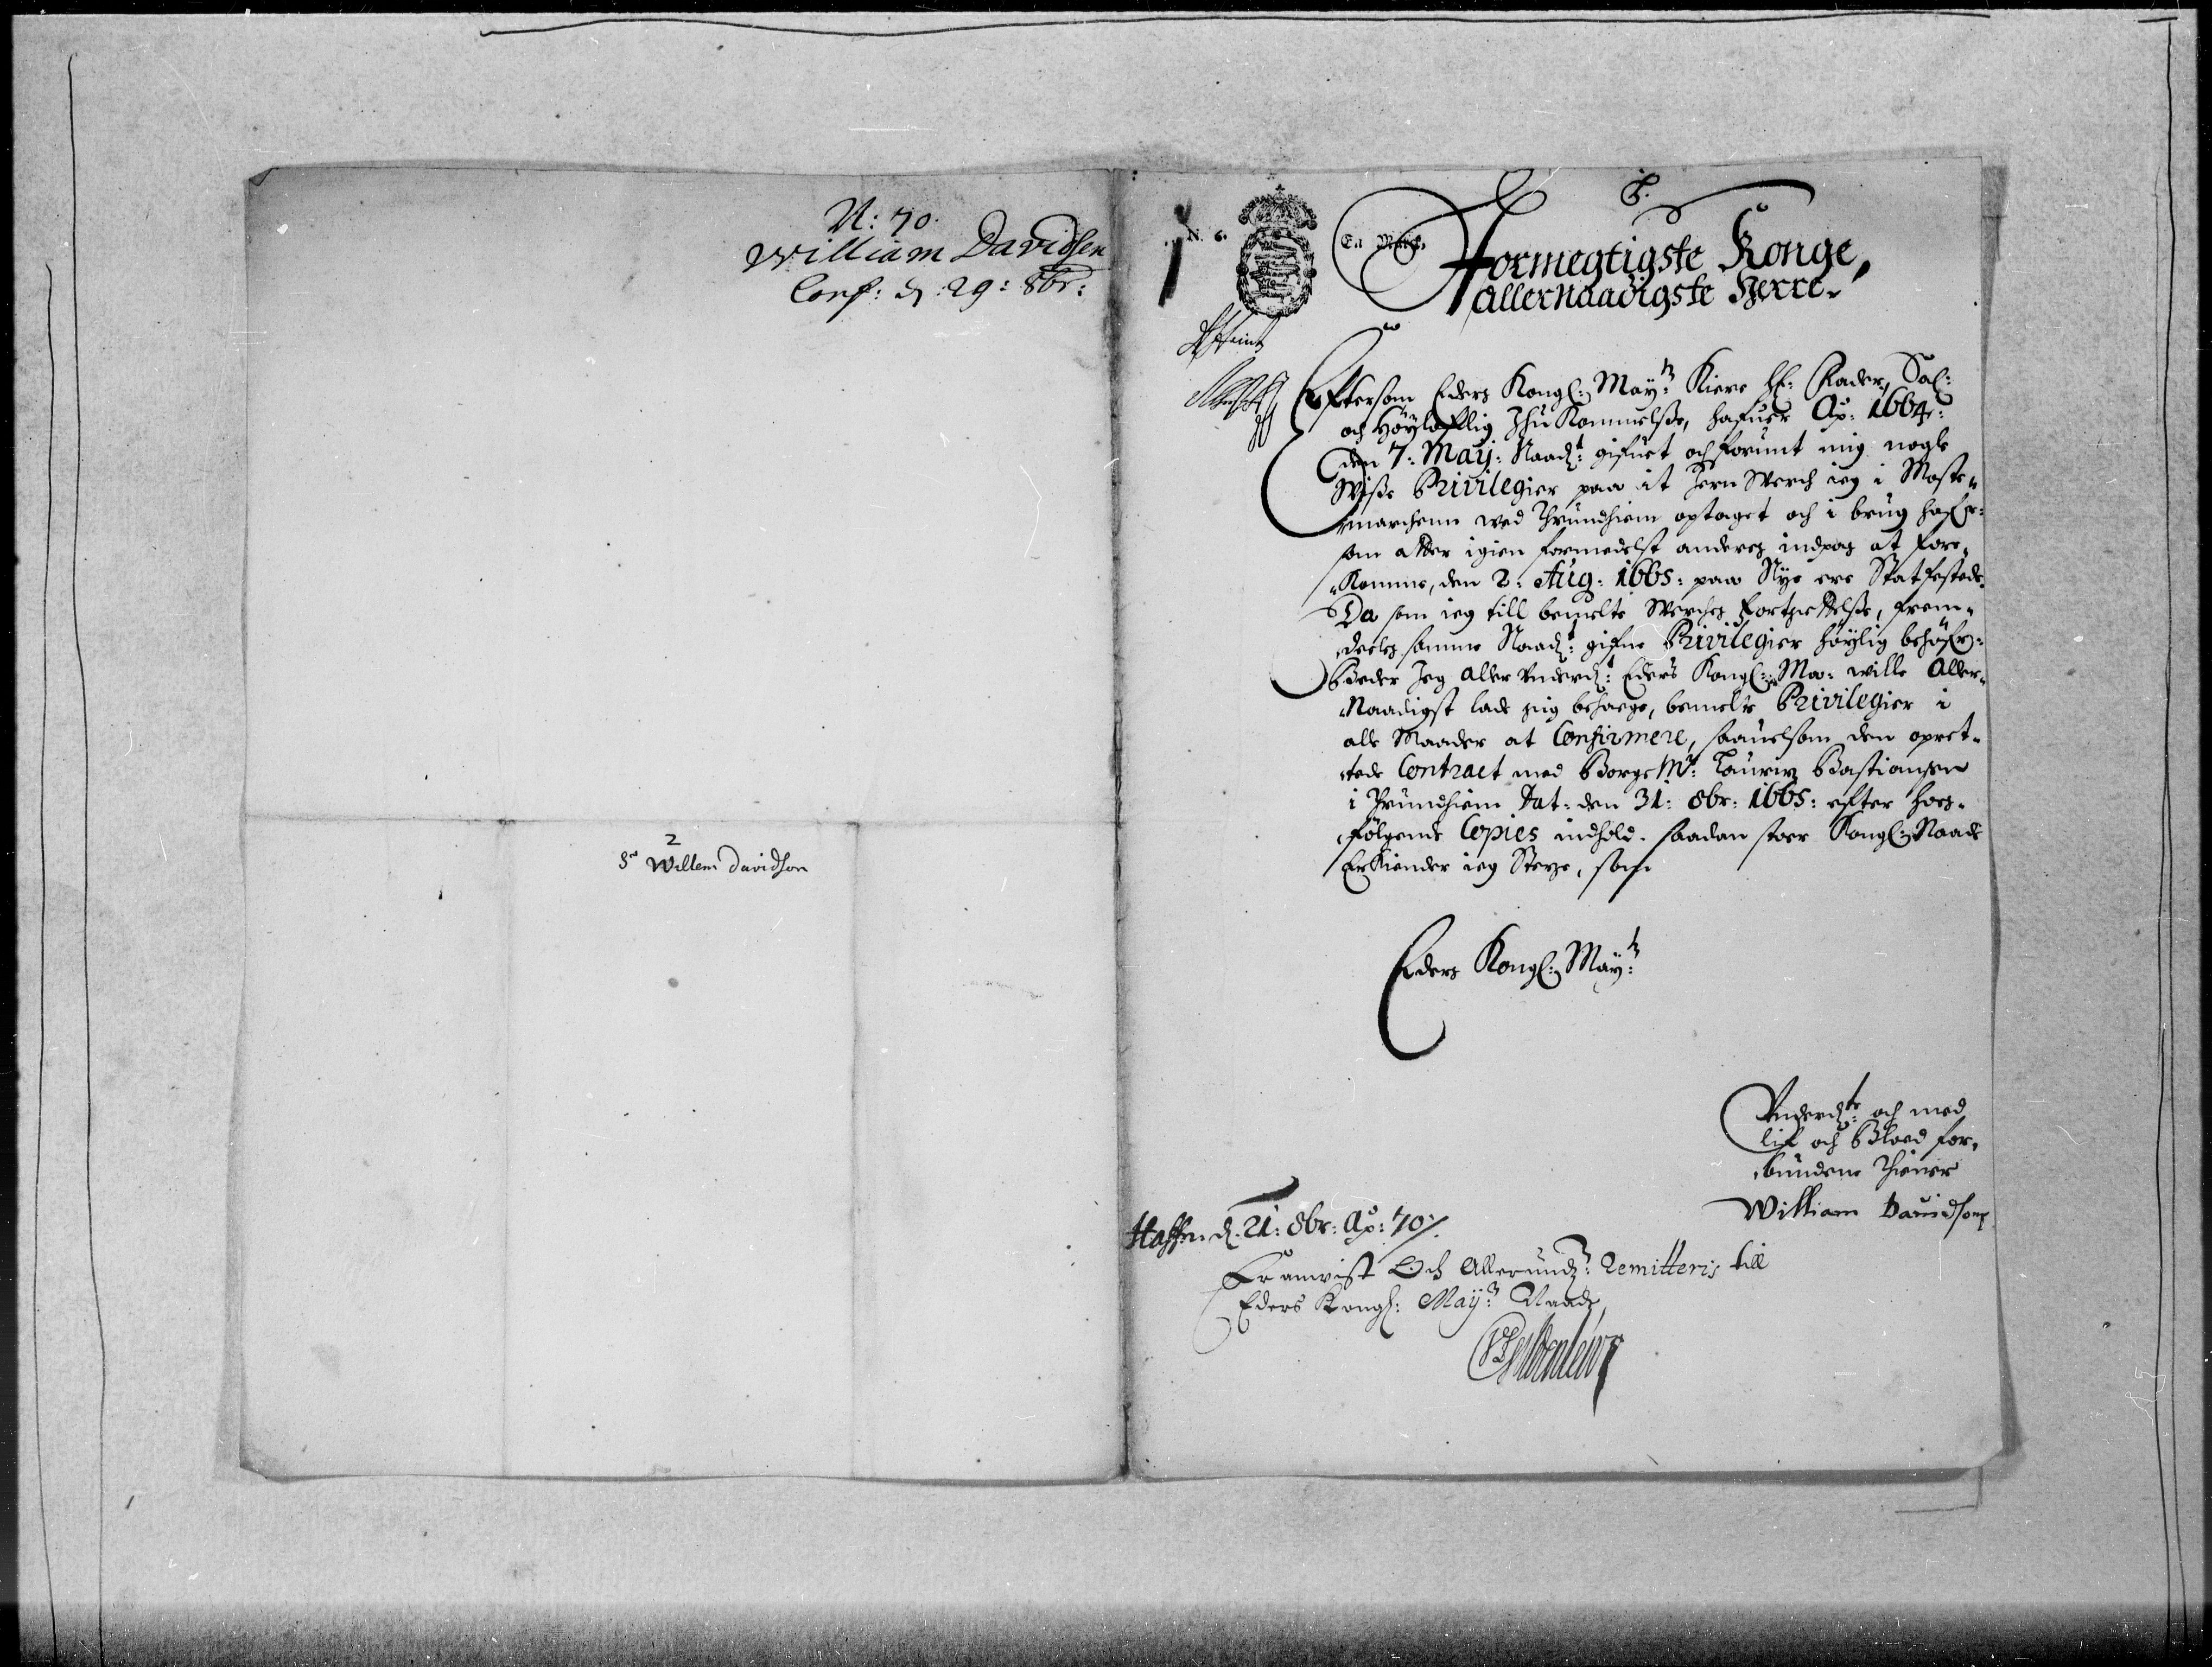 N: 70.
William Davidsen
Conf: d: 29: 8br:
2
Sr Willem Davidson
N. 6.
En Marck
Formegtigste Konge,
Allernaadigste Herre.
Eftersom Eders Kongl: Mayts: Kiere Hr: Fader, Sal:
och Høyloflig Ihu Kommelsse, hafuer Ao: 1664:
den 7: Maij: Naadt: gifuet och forunt mig nogle
Wisse Privilegier paa it Jern Werch ieg i Moste-
marchenn wed Thrundhiem optaget och i brug hafr:
som atter igien formedelst anders indpas at fore-
Komme, den 2: Aug: 1665: paa Nye ere Statfestede.
Da som ieg till bemelte Werches fortsettelsse, frem-
deeles samme Naadt: gifne Privilegier høylig behøfr:
Beder Jeg aller underdt: Eders Kongl: Ma: wille Aller-
Naadigst lade sig behaege, bemelte Privilegier i
alle Maader at Confirmere, saauelsom den opret-
tede Contract med BorgeMr: Lauritz Bastiansen
i Trundhiem Dat: den 31: 8br: 1665: efter hos-
følgende Copies indhold. saadan stoer Kongl: Naade
ErKiender ieg Stetze, som
Eders Kongl: Mayts:
Underdte: och med
lif och Bloed for-
bundene Thiener
William Dauidson
Haffn. d. 21: 8br: Ao: 70/.
Er anvist Och Allerundt: Remitteris till
Eders Kongl: Mayts: Naade,
UFGyldenleuve